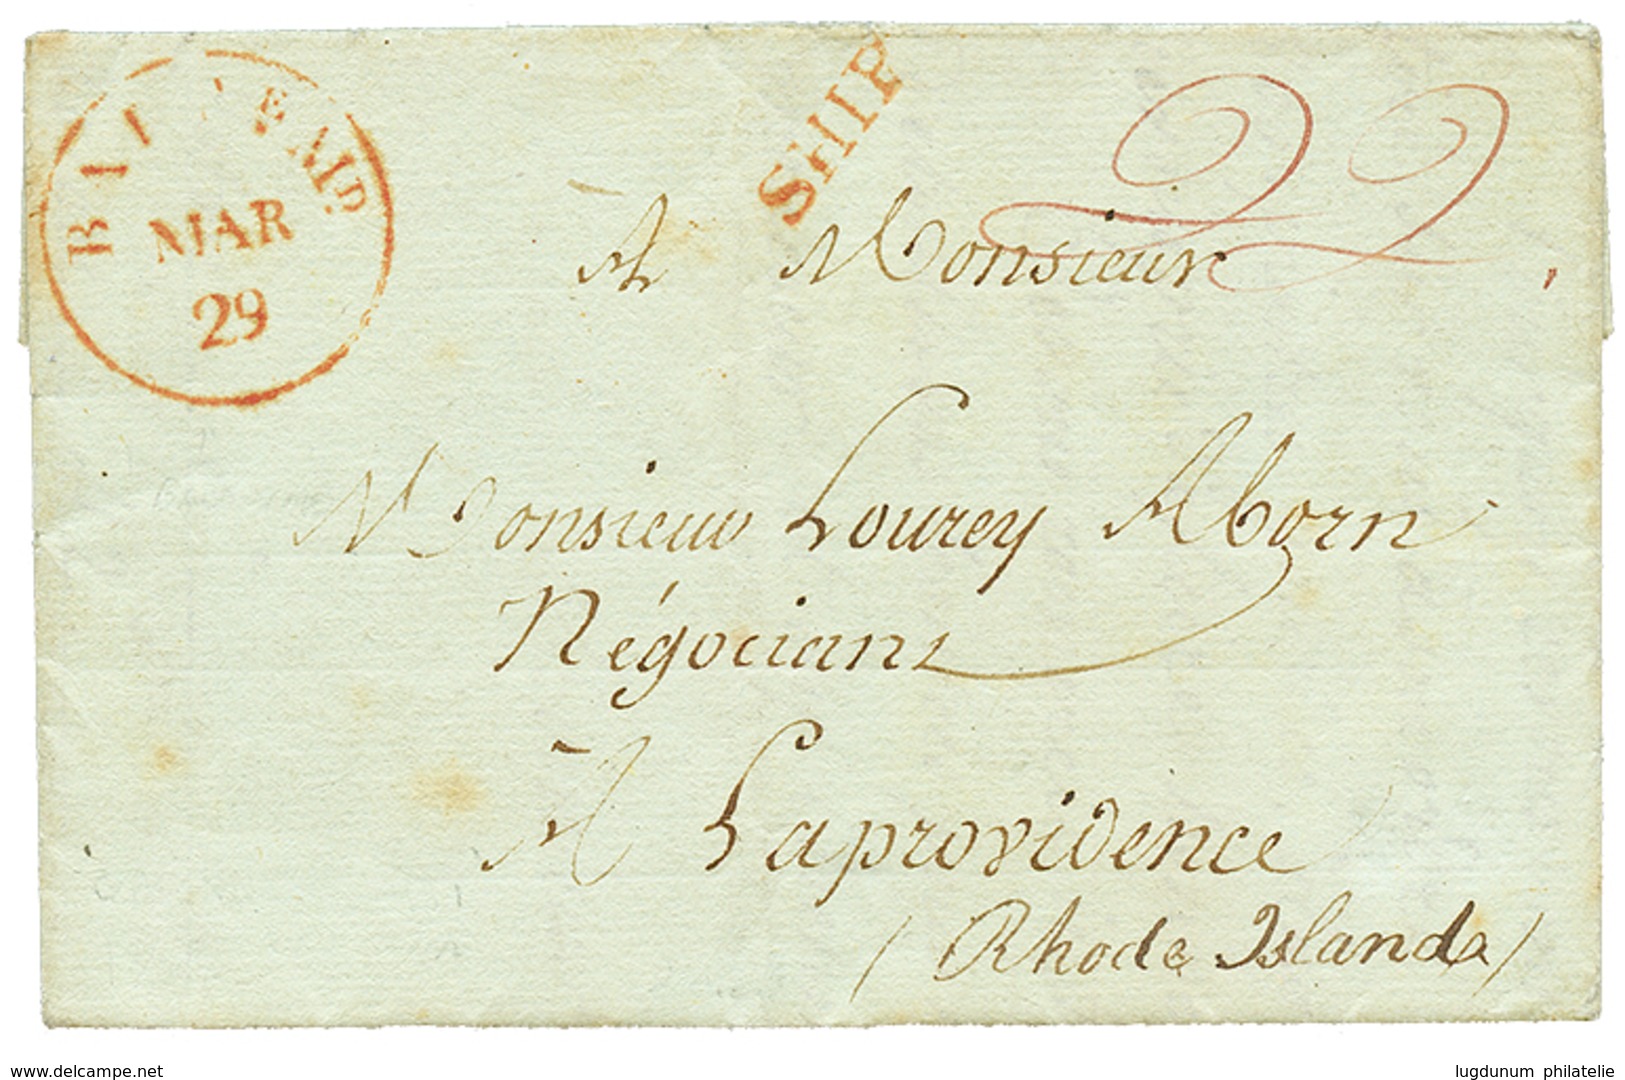 BAL MD
MAR
29
SHIP
22
A Monsieur
Monsieur Lourey Aborn
Négociant
A Laprovidence
(Rhode Islanda)
www.delcampe.net
lugdunum philatelie